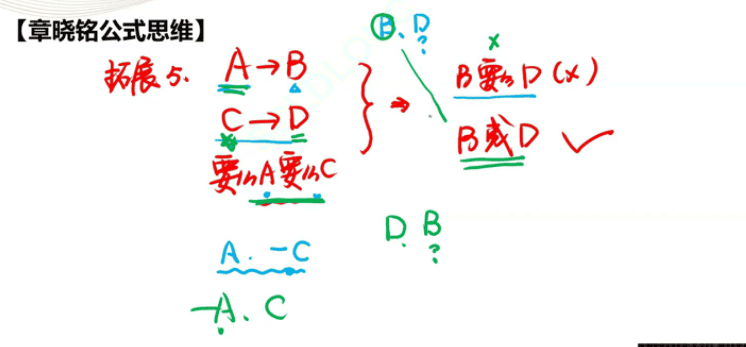 【章晓铭公式思维】
拓展5. A→B
C→D
要么A要么C
⇒
B、D
?
×
B要么D(×)
B或D ✓
A. -C
-A. C
D. B
?